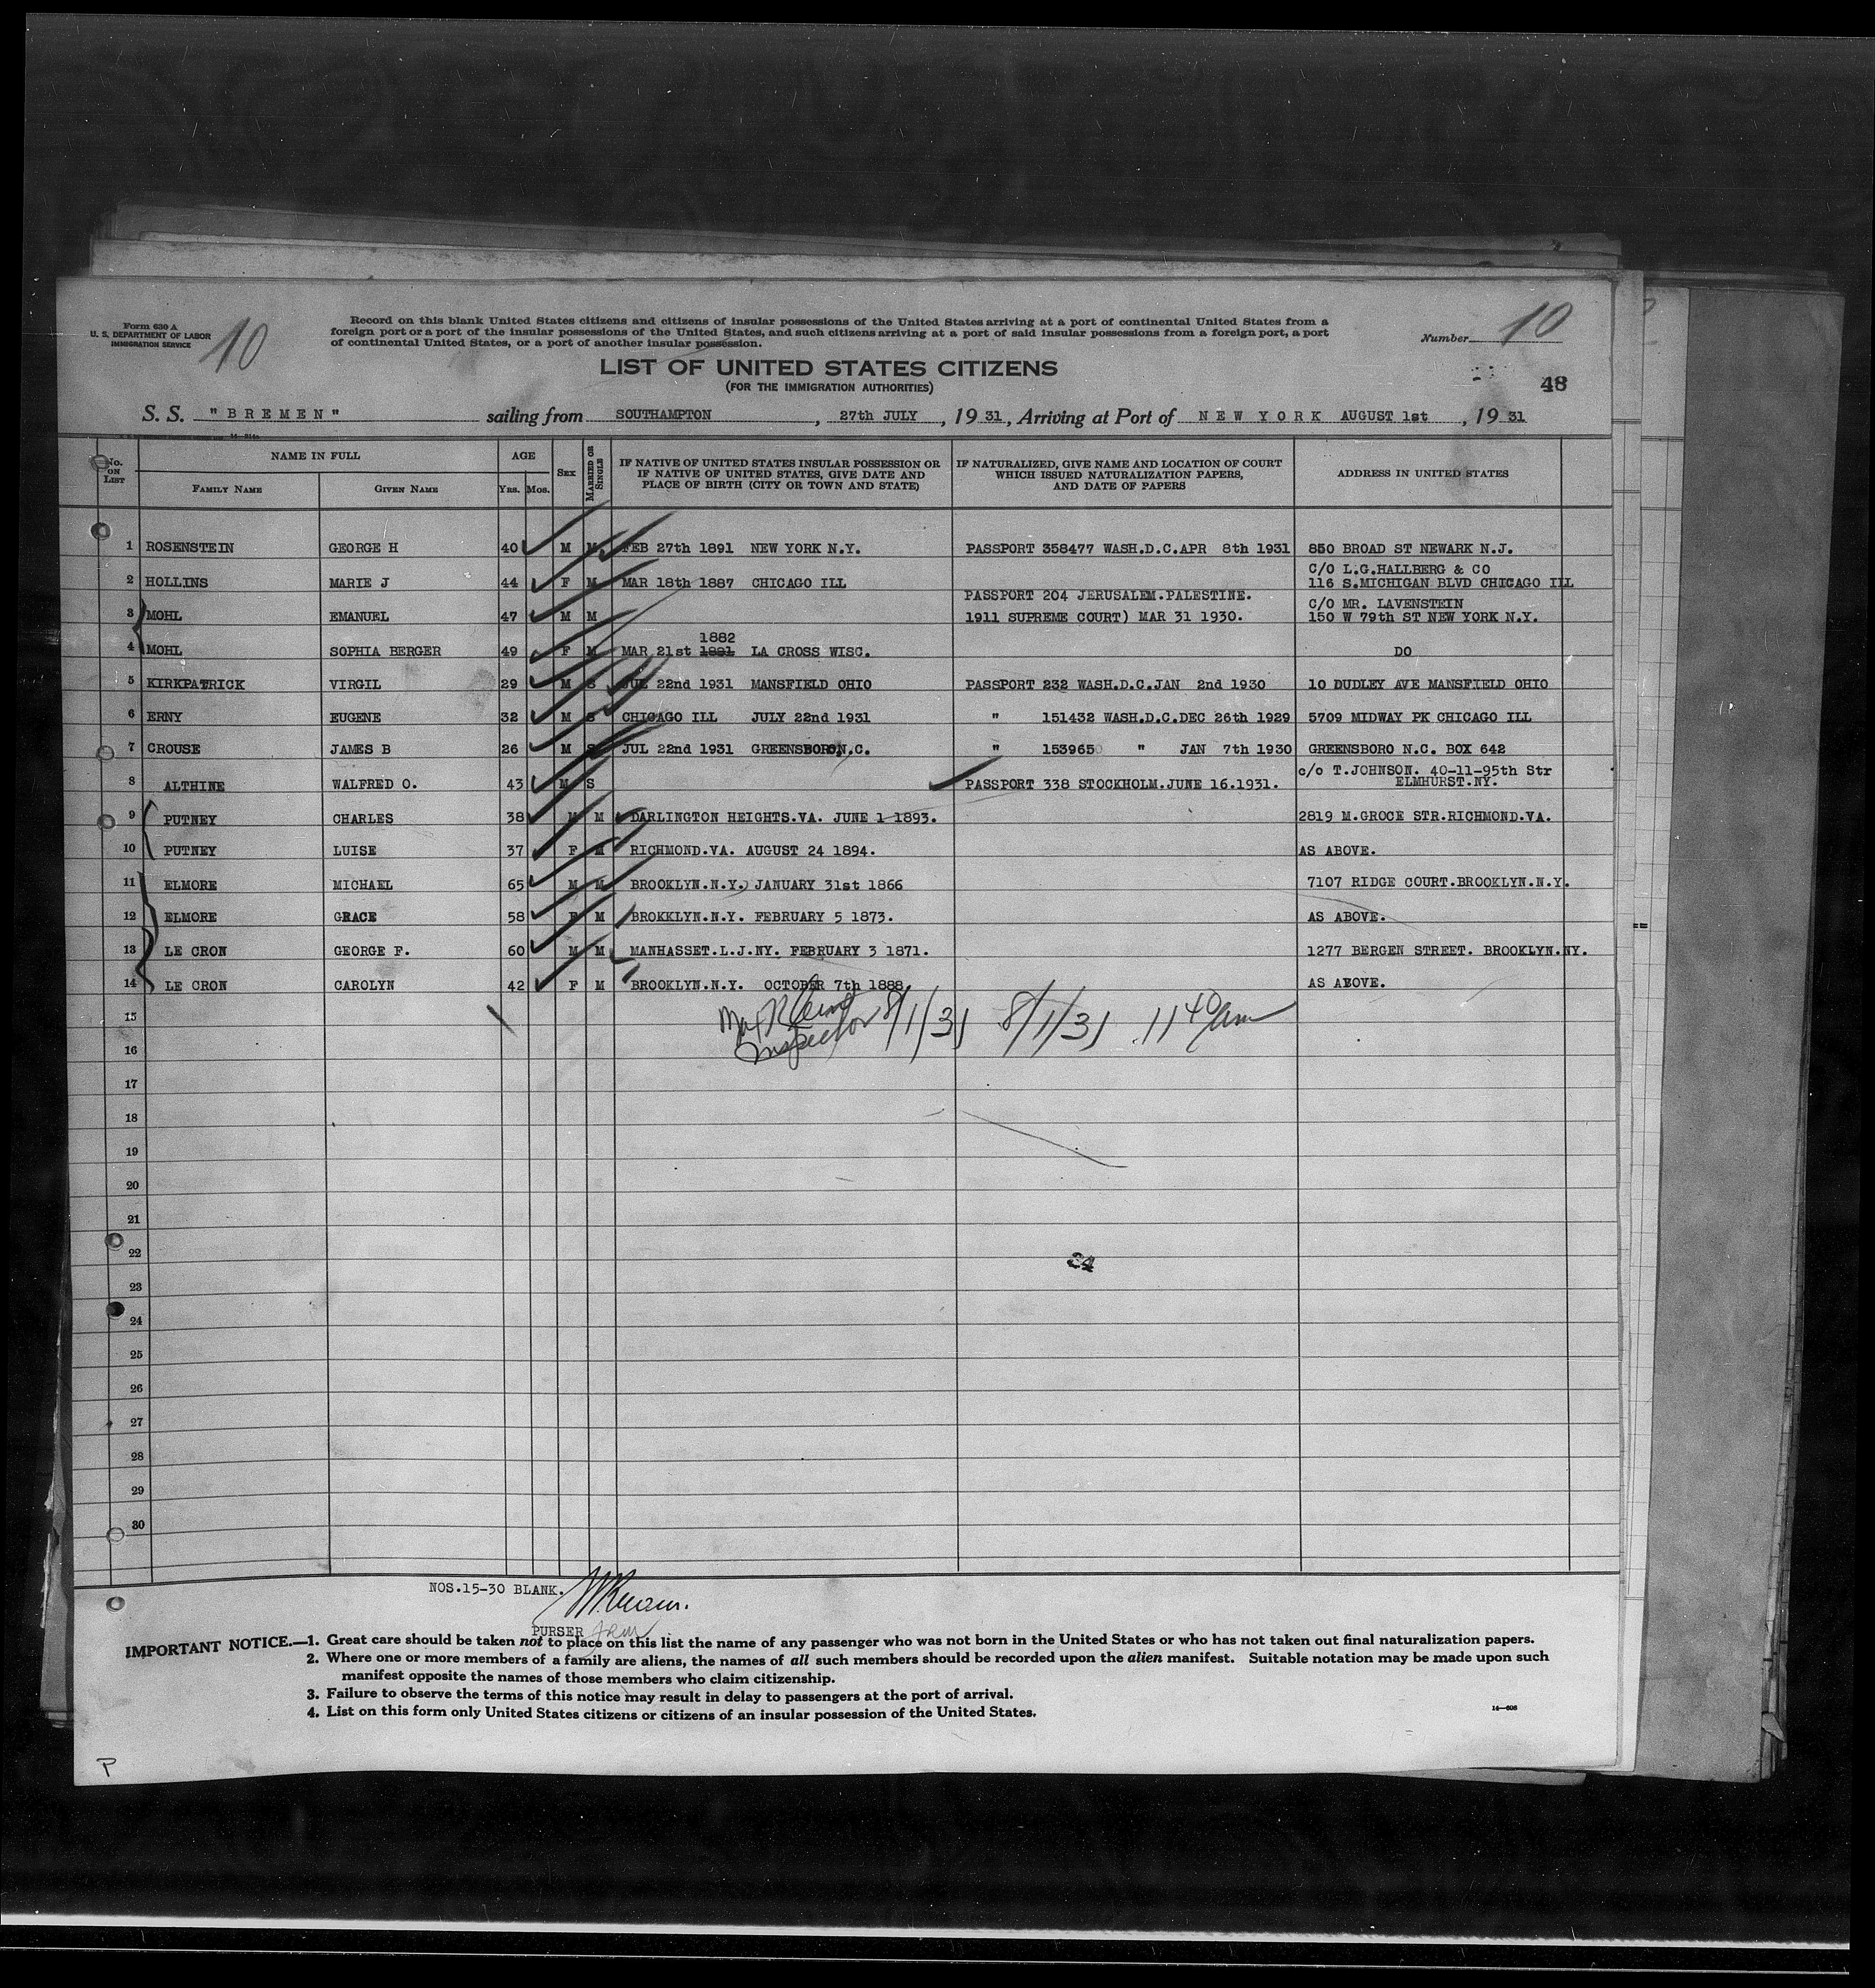 Form 630 A
U. S. DEPARTMENT OF LABOR
IMMIGRATION SERVICE
10
Record on this blank United States citizens and citizens of insular possessions of the United States arriving at a port of continental United States from a
foreign port or a port of the insular possessions of the United States, and such citizens arriving at a port of said insular possessions from a foreign port, a port
of continental United States, or a port of another insular possession.
Number 10
LIST OF UNITED STATES CITIZENS
(FOR THE IMMIGRATION AUTHORITIES)
48
S. S. "BREMEN" sailing from SOUTHAMPTON, 27th JULY, 1931, Arriving at Port of NEW YORK AUGUST 1st, 1931
No. ON LIST
NAME IN FULL
FAMILY NAME
GIVEN NAME
AGE
YRS. MOS.
SEX
MARRIED OR SINGLE
IF NATIVE OF UNITED STATES INSULAR POSSESSION OR
IF NATIVE OF UNITED STATES, GIVE DATE AND
PLACE OF BIRTH (CITY OR TOWN AND STATE)
IF NATURALIZED, GIVE NAME AND LOCATION OF COURT
WHICH ISSUED NATURALIZATION PAPERS,
AND DATE OF PAPERS
ADDRESS IN UNITED STATES
1 ROSENSTEIN GEORGE H 40 M M FEB 27th 1891 NEW YORK N.Y. PASSPORT 358477 WASH.D.C.APR 8th 1931 850 BROAD ST NEWARK N.J.
C/O L.G.HALLBERG & CO
2 HOLLINS MARIE J 44 F M MAR 18th 1887 CHICAGO ILL 116 S.MICHIGAN BLVD CHICAGO ILL
PASSPORT 204 JERUSALEM.PALESTINE. C/O MR. LAVENSTEIN
3 MOHL EMANUEL 47 M M 1911 SUPREME COURT) MAR 31 1930. 150 W 79th ST NEW YORK N.Y.
1882
4 MOHL SOPHIA BERGER 49 F M MAR 21st 1881 LA CROSS WISC. DO
5 KIRKPATRICK VIRGIL 29 M S JUL 22nd 1931 MANSFIELD OHIO PASSPORT 232 WASH.D.C.JAN 2nd 1930 10 DUDLEY AVE MANSFIELD OHIO
6 ERNY EUGENE 32 M S CHICAGO ILL JULY 22nd 1931 " 151432 WASH.D.C.DEC 26th 1929 5709 MIDWAY PK CHICAGO ILL
7 CROUSE JAMES B 26 M S JUL 22nd 1931 GREENSBORO,N.C. " 153965 " JAN 7th 1930 GREENSBORO N.C. BOX 642
c/o T.JOHNSON. 40-11-95th Str
8 ALTHINE WALFRED O. 43 M S PASSPORT 338 STOCKHOLM.JUNE 16.1931. ELMHURST.NY.
9 PUTNEY CHARLES 38 M M DARLINGTON HEIGHTS.VA. JUNE 1 1893. 2819 M.GROCE STR.RICHMOND.VA.
10 PUTNEY LUISE 37 F M RICHMOND.VA. AUGUST 24 1894. AS ABOVE.
11 ELMORE MICHAEL 65 M M BROOKLYN.N.Y. JANUARY 31st 1866 7107 RIDGE COURT.BROOKLYN.N.Y.
12 ELMORE GRACE 58 F M BROKKLYN.N.Y. FEBRUARY 5 1873. AS ABOVE.
13 LE CRON GEORGE F. 60 M M MANHASSET.L.J.NY. FEBRUARY 3 1871. 1277 BERGEN STREET. BROOKLYN.NY.
14 LE CRON CAROLYN 42 F M BROOKLYN.N.Y. OCTOBER 7th 1888. AS ABOVE.
15
Inspector 8/1/31 8/1/31 11 40 am
16
17
18
19
20
21
22
24
23
24
25
26
27
28
29
30
NOS.15-30 BLANK.
PURSER
IMPORTANT NOTICE.—1. Great care should be taken not to place on this list the name of any passenger who was not born in the United States or who has not taken out final naturalization papers.
2. Where one or more members of a family are aliens, the names of all such members should be recorded upon the alien manifest. Suitable notation may be made upon such
manifest opposite the names of those members who claim citizenship.
3. Failure to observe the terms of this notice may result in delay to passengers at the port of arrival.
4. List on this form only United States citizens or citizens of an insular possession of the United States.
14—608
P